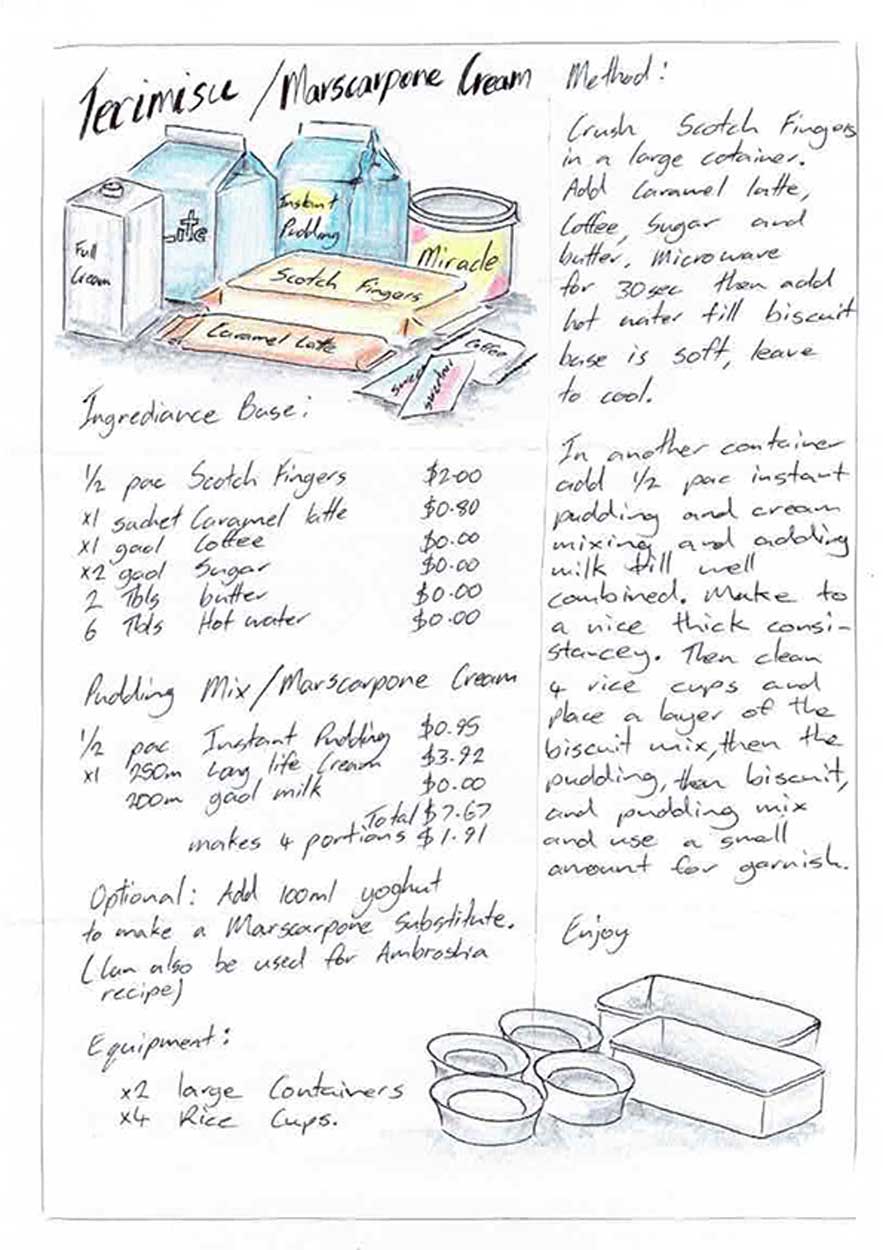 Terimisu / Marscarpone Cream
Full
Cream
Lite
Instant
Pudding
Miracle
Scotch Fingers
Caramel Latte
Coffee
Ingrediance Base:
1/2 pac Scotch Fingers $2.00
x1 sachet Caramel latte $0.80
x1 gaol Coffee $0.00
x2 gaol Sugar $0.00
2 Tbls butter $0.00
6 Tbls Hot water $0.00
Pudding Mix/Marscarpone Cream
1/2 pac Instant Pudding $0.95
x1 250m Long life Cream $3.92
200m gaol milk $0.00
Total $7.67
makes 4 portions $1.91
Optional: Add 100ml yoghut
to make a Marscarpone Substitute.
(Can also be used for Ambroshia
recipe)
Equipment:
x2 large Containers
x4 Rice Cups.
Method:
Crush Scotch Fingers
in a large cotainer.
Add Caramel latte,
Coffee, Sugar and
butter. Microwave
for 30sec then add
hot water till biscuit
base is soft, leave
to cool.
In another container
add 1/2 pac instant
pudding and cream
mixing and adding
milk till well
combined. Make to
a nice thick consi-
stancey. Then clean
4 rice cups and
place a layer of the
biscuit mix, then the
pudding, then biscuit,
and pudding mix
and use a small
amount for garnish.
Enjoy